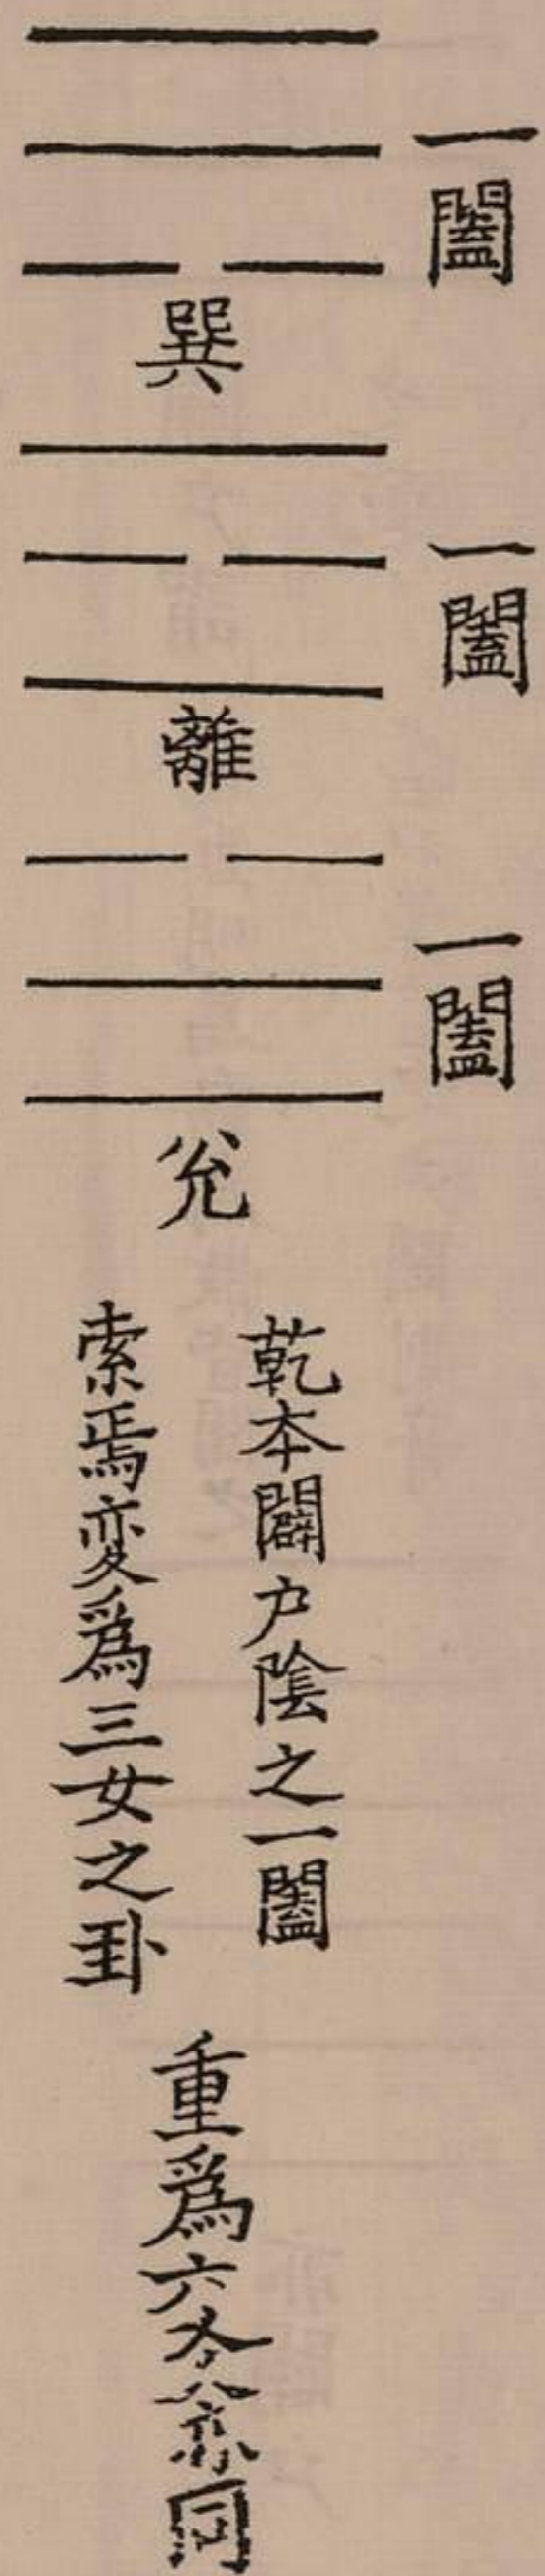 一闔
巽
一闔
離
一闔
兊
乾本闢户陰之一闔
索焉変爲三女之卦
重爲六爻亦同